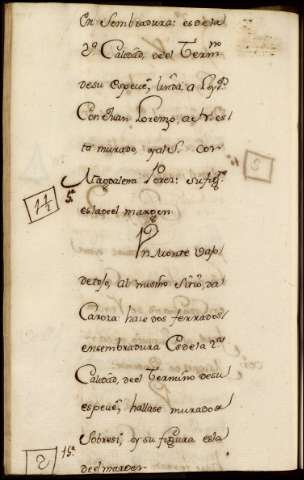 En Sembradura: es de la
2ª Calidad, de el Termno
de su especue, linda a Poyte
Con Juan Lorenzo, a Nr. es
ta murado, y al S. con
Magdalena Perez: su figª
esta de el margen
14
5ª
2
Un Monte vajo
de tojo, al mismo Sitio, da
Caroza: haze dos ferrados
en sembradura Es de la 2ª
Calidad, de el Termino de su
especue, hallase murado st
Sobresi, y su figura esta
de el margen
2
15ª